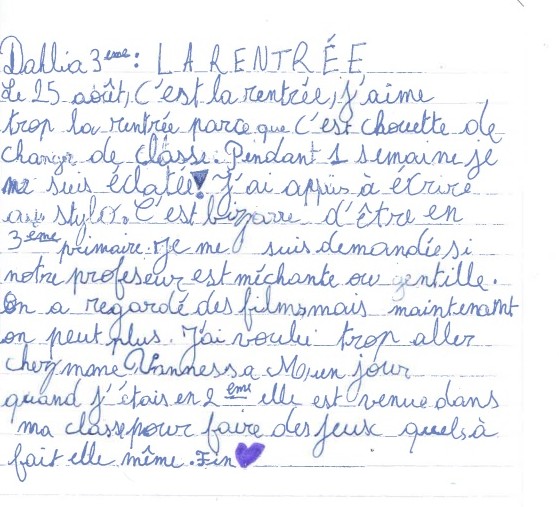 Dahlia 3ème: LA RENTRÉE
Le 25 août, C'est la rentrée, j'aime
trop la rentrée parce que C'est chouette de
changer de classe. Pendant 1 semaine je
me suis éclatée! J'ai appris à écrire
au stylo. C'est bizarre d'être en
3ème primaire. Je me suis demandée si
notre profeseur est méchante ou gentille.
On a regardé des films, mais maintenant
on peut plus. J'ai voulu trop aller
chez mme Vannessa M, un jour
quand j'étais en 2ème elle est venue dans
ma classe pour faire des jeux quels à
fait elle même. Fin